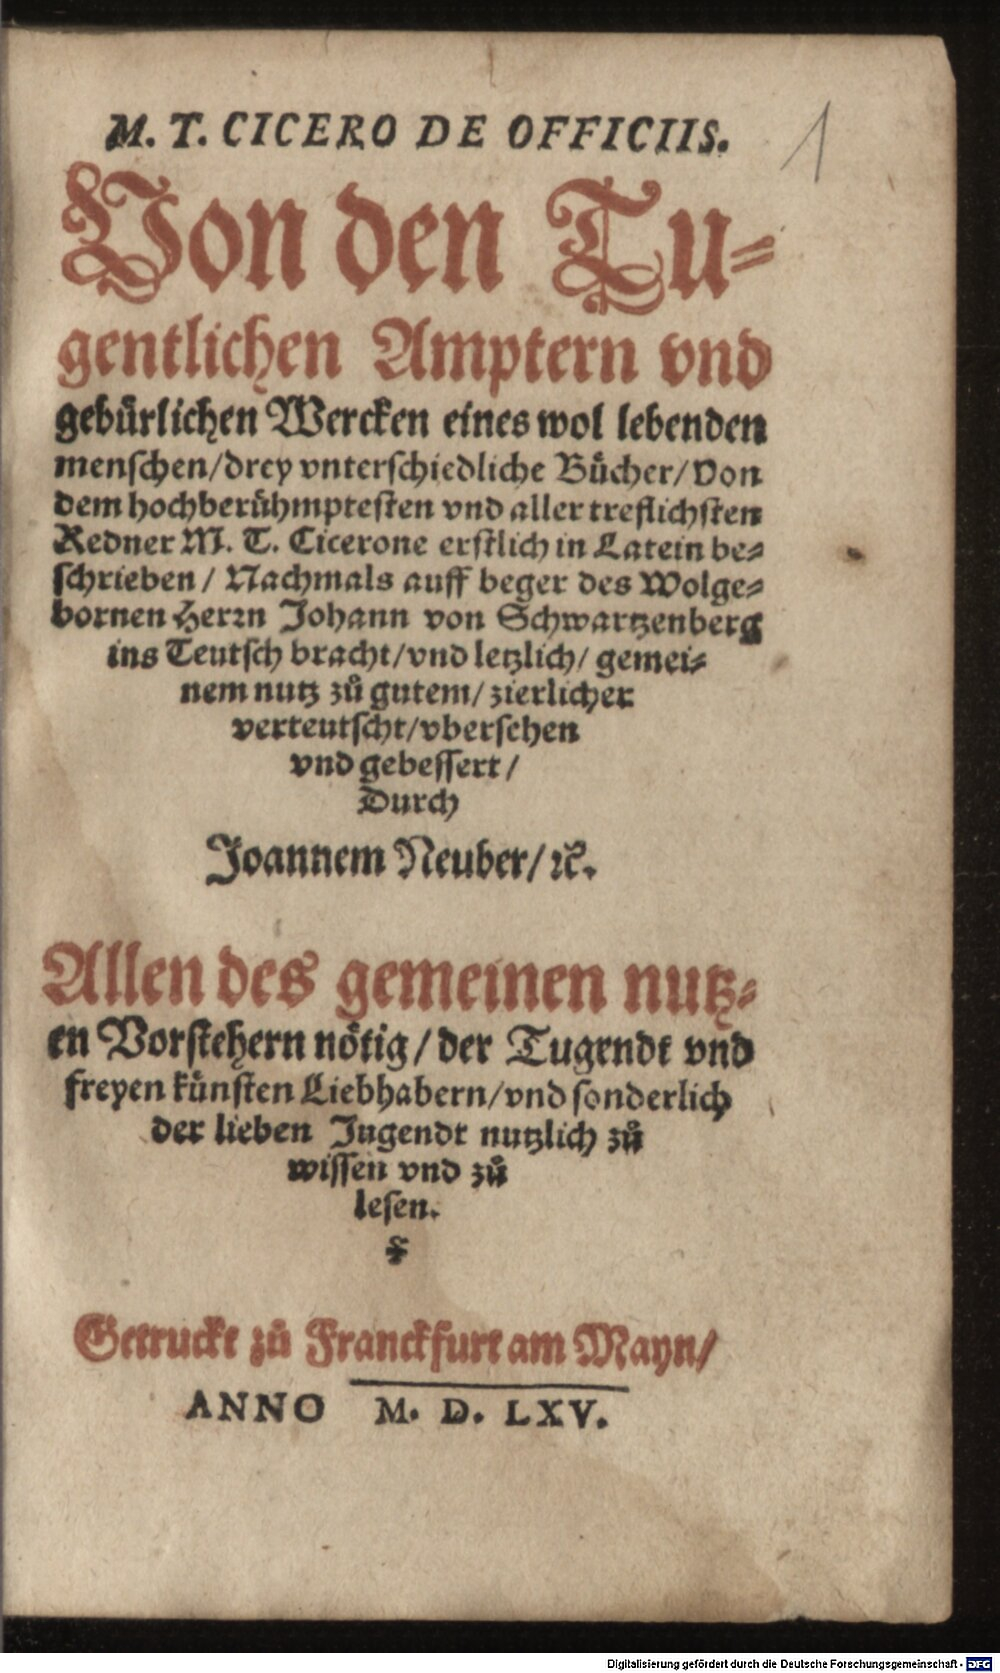 M. T. CICERO DE OFFICIIS.
1
Von den Tu-
gentlichen Amptern vnd
gebürlichen Wercken eines wol lebenden
menschen/drey vnterschiedliche Bücher/Von
dem hochberühmptesten vnd aller treflichsten
Redner M. T. Cicerone erstlich in Latein be-
schrieben/ Nachmals auff beger des Wolge-
bornen Herrn Johann von Schwartzenberg
ins Teutsch bracht/vnd letzlich/ gemei-
nem nutz zů gutem/ zierlicher
verteutscht/vbersehen
vnd gebessert/
Durch
Joannem Neuber/ꝛc.
Allen des gemeinen nutz-
en Vorstehern nötig/ der Tugendt vnd
freyen künsten Liebhabern/vnd sonderlich
der lieben Jugendt nutzlich zů
wissen vnd zů
lesen.
Getruckt zů Franckfurt am Mayn/
ANNO M. D. LXV.
Digitalisierung gefördert durch die Deutsche Forschungsgemeinschaft - DFG